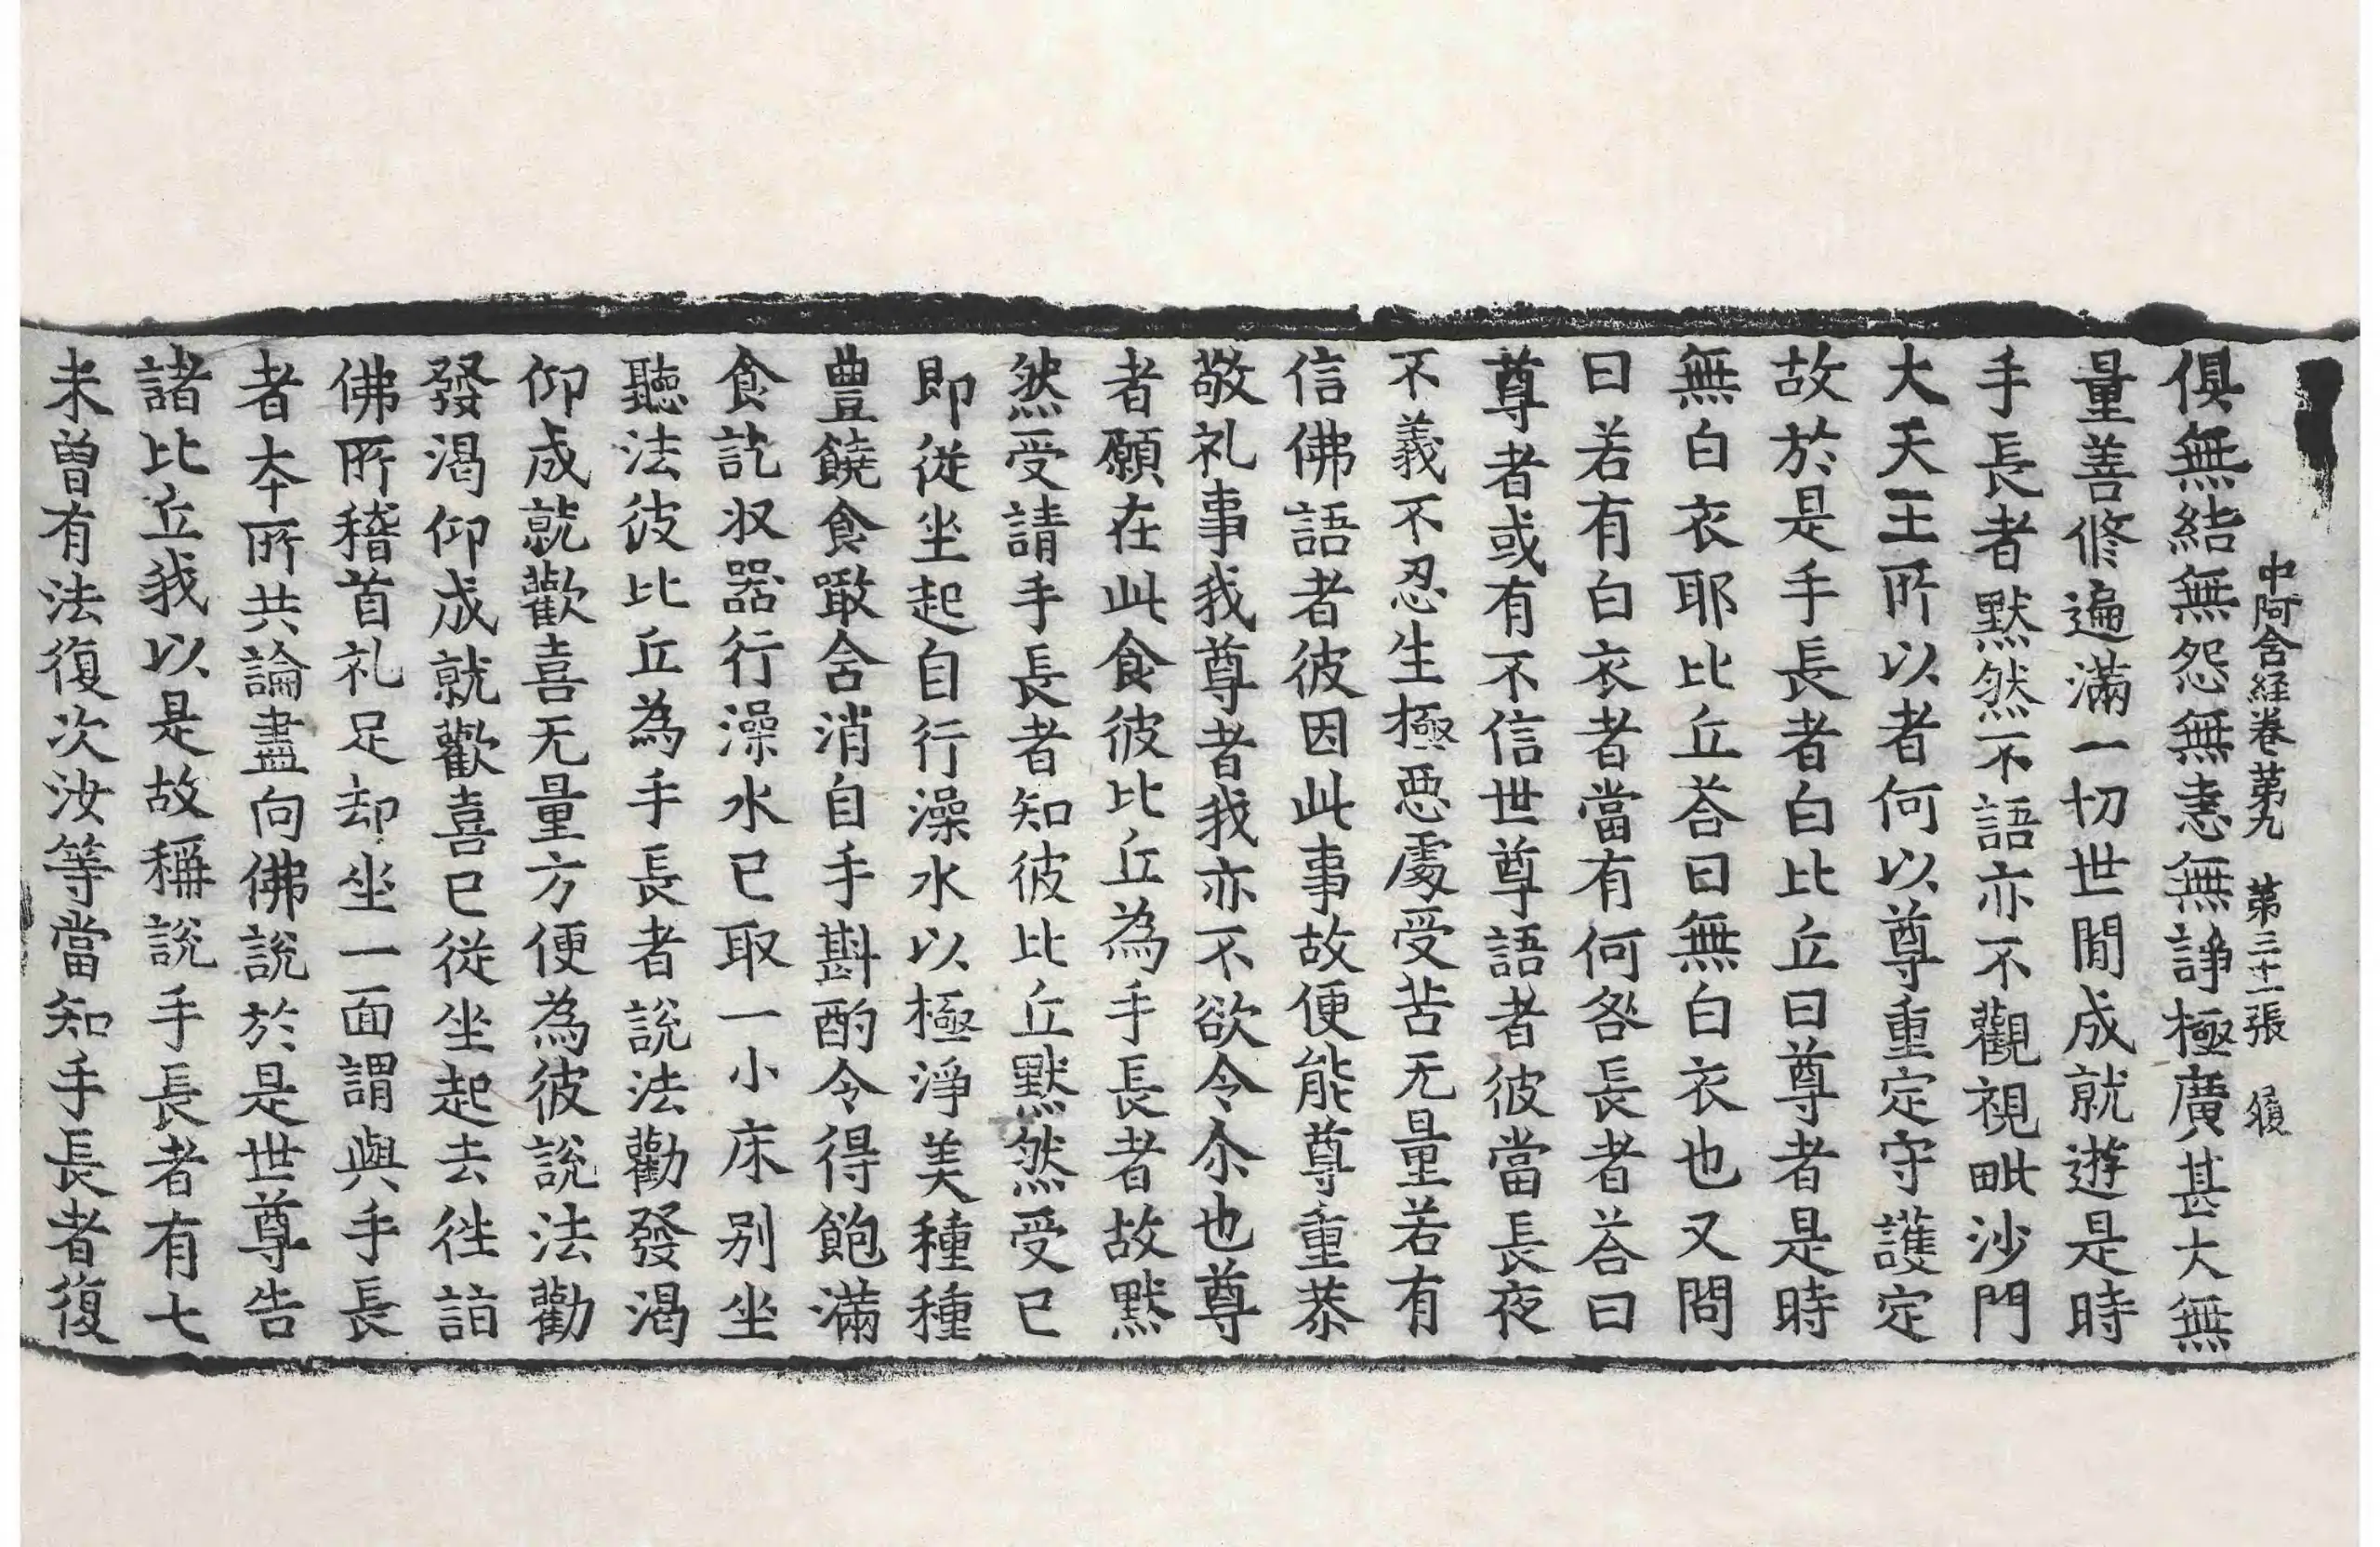 中阿含経卷苐九 苐三十一張 履
俱無結無怨無恚無諍極廣甚大無
量善修遍滿一切世閒成就遊是時
手長者默然不語亦不觀視毗沙門
大天王所以者何以尊重定守護定
故於是手長者白比丘曰尊者是時
無白衣耶比丘荅曰無白衣也又問
曰若有白衣者當有何咎長者荅曰
尊者或有不信世尊語者彼當長夜
不義不忍生極惡處受苦无量若有
信佛語者彼因此事故便能尊重恭
敬礼事我尊者我亦不欲令尒也尊
者願在此食彼比丘為手長者故默
然受請手長者知彼比丘默然受已
即從坐起自行澡水以極淨美種種
豊饒食噉含消自手斟酌令得飽滿
食訖収器行澡水已取一小床别坐
聽法彼比丘為手長者說法勸發渴
仰成就歡喜无量方便為彼說法勸
發渴仰成就歡喜已從坐起去徃詣
佛所稽首礼足却坐一面謂與手長
者夲所共論盡向佛說於是世尊告
諸比丘我以是故稱說手長者有七
未曽有法復次汝等當知手長者復